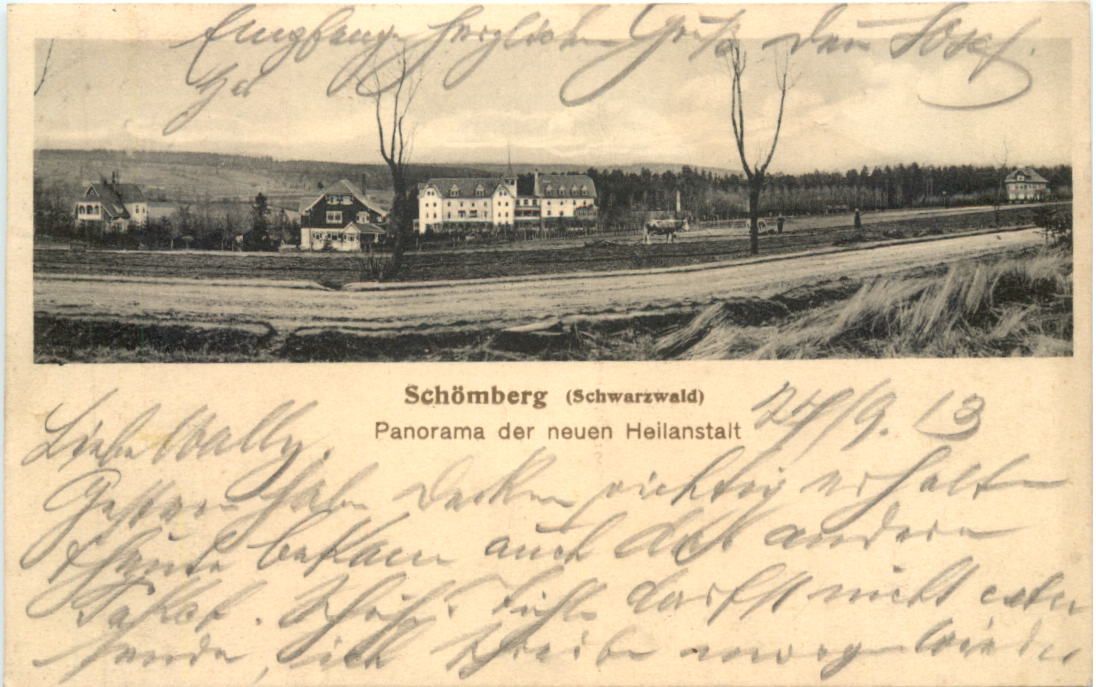 Empfange herzlichen Gruß dein Josef.
Schömberg (Schwarzwald)
Panorama der neuen Heilanstalt
24/9. 13
Liebe Wally.
Gestern habe Decken richtig erhalten
heute bekam auch das andere
Paket. darfst nicht
ich schreibe morgen wieder